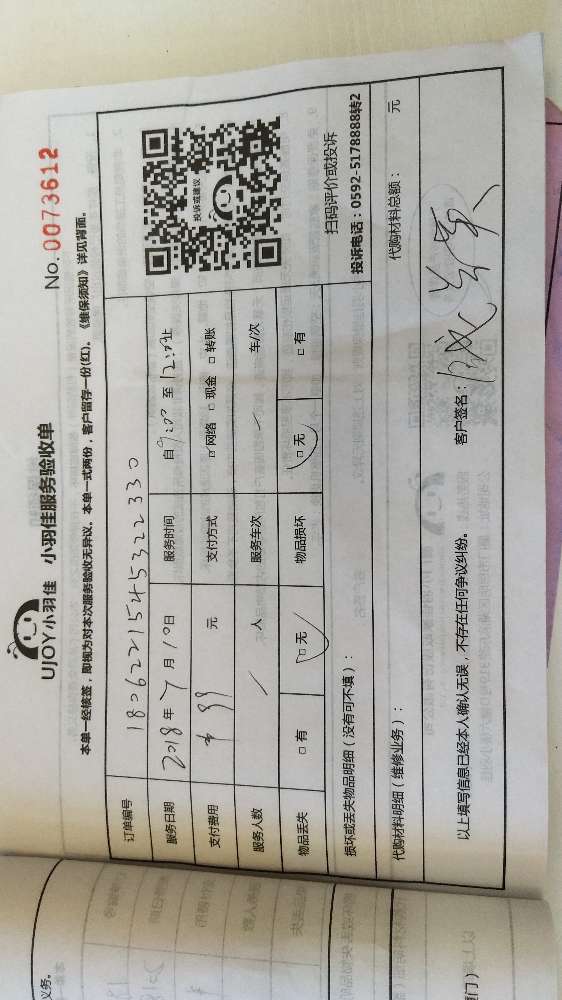 UJOY小羽佳 小羽佳服务验收单
No. 0073612
本单一经核签，即视为对本次服务验收无异议。本单一式两份，客户留存一份(红)。《维保须知》详见背面。
订单编号 1806221545322330
服务日期 2018年7月10日 服务时间 自9:00至12:00止
支付费用 99元 支付方式 ☑网络 □现金 □转账
服务人数 / 人 服务车次 / 车/次
物品丢失 □有 □无 物品损坏 □无 □有
投诉或建议
扫码评价或投诉
投诉电话：0592-5178888转2
损坏或丢失物品明细（没有可不填）：
代购材料明细（维修业务）： 代购材料总额： 元
以上填写信息已经本人确认无误，不存在任何争议纠纷。 客户签名：